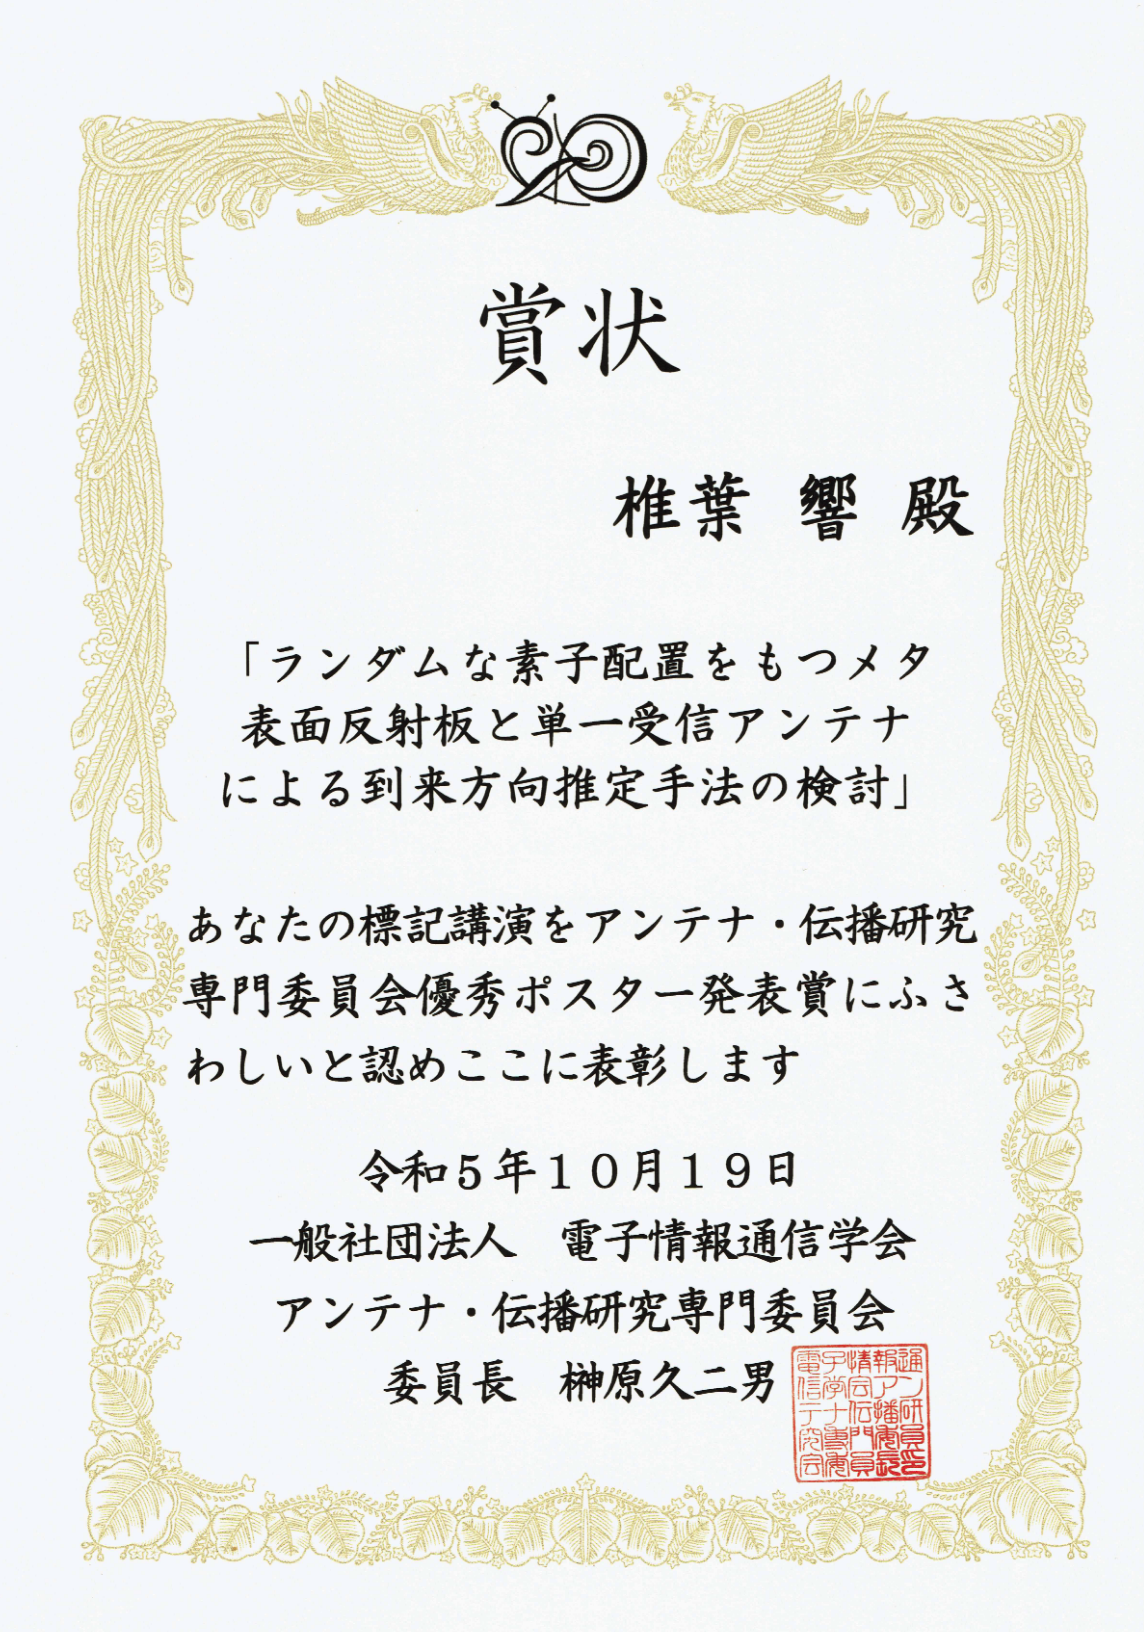 賞状
椎葉 響 殿
「ランダムな素子配置をもつメタ
表面反射板と単一受信アンテナ
による到来方向推定手法の検討」
あなたの標記講演をアンテナ・伝播研究
専門委員会優秀ポスター発表賞にふさ
わしいと認めここに表彰します
令和5年10月19日
一般社団法人 電子情報通信学会
アンテナ・伝播研究専門委員会
委員長 榊原久二男
電子情報通
信学会アン
テナ伝播研
究専門委員
会委員長印